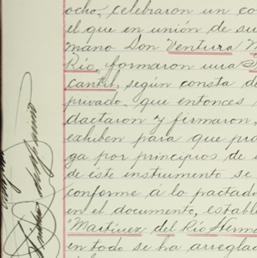 ocho, celebraron un co
el que en unión de su
mano Don Ventura
Río, formaron una
cantil, según consta d
privado, que entonces
dactaron y firmaron,
exhiben para que pro
ga por principios de
de éste instrumento se
conforme á lo pactad
en el documento, estable
"Martinez del Rio Herma
en todo se ha arregla